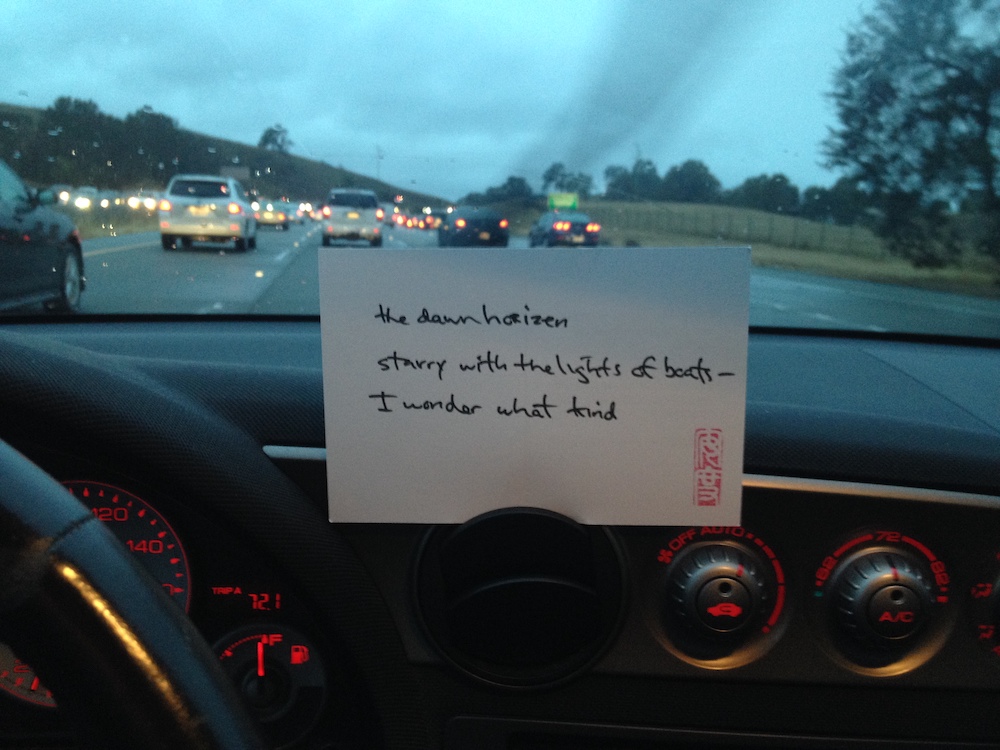 the dawn horizen
starry with the lights of boats—
I wonder what kind
120
140
TRIP A
72.1
F
OFF AUTO
62 72 82
A/C